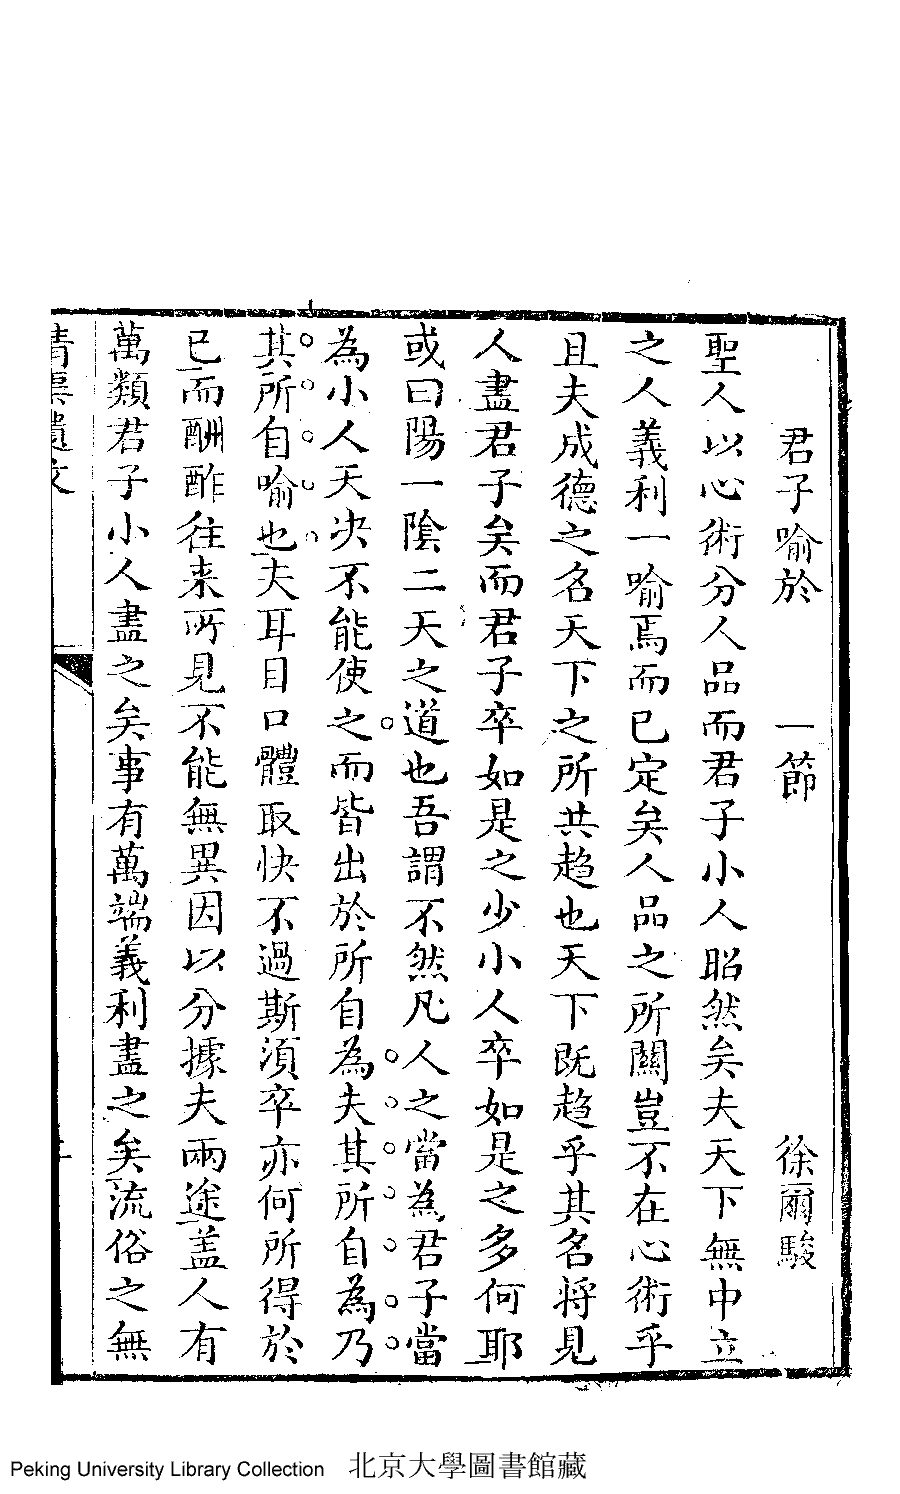 君子喻於　一節　徐爾駿
聖人以心術分人品而君子小人昭然矣夫天下無中立
之人義利一喻焉而已定矣人品之所關豈不在心術乎
且夫成德之名天下之所共趋也天下既趋乎其名将見
人盡君子矣而君子卒如是之少小人卒如是之多何耶
或曰陽一陰二天之道也吾謂不然凡人之當為君子當
為小人天决不能使之而皆出於所自為夫其所自為乃
其所自喻也夫耳目口體取快不過斯須卒亦何所得於
已而酬酢往来所見不能無異因以分據夫兩途盖人有
萬類君子小人盡之矣事有萬端義利盡之矣流俗之無
Peking University Library Collection 北京大學圖書館藏